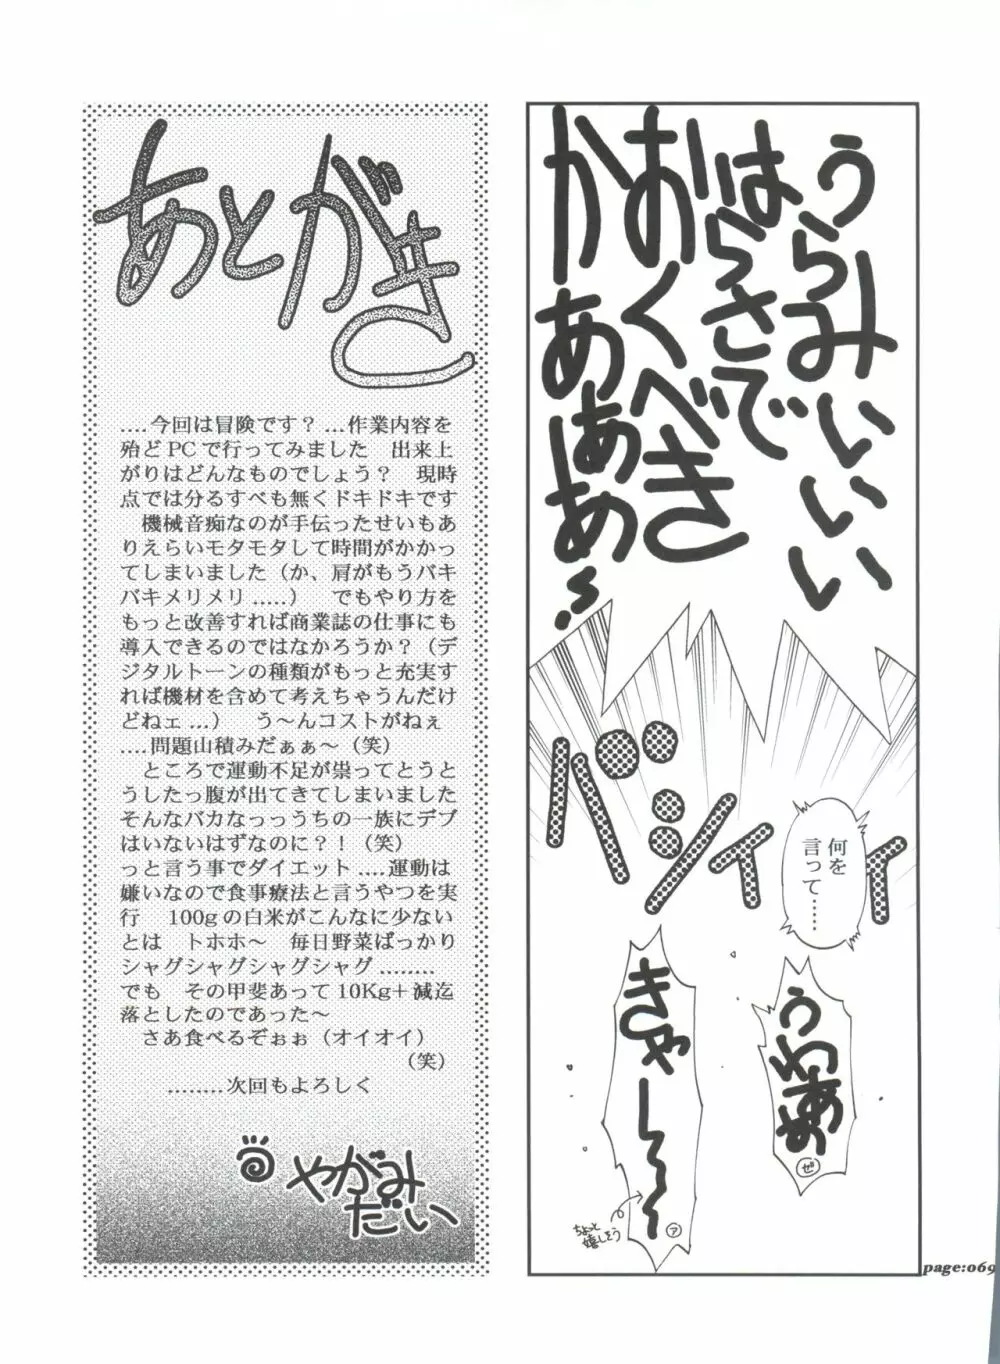 うらみいいい
はらさで
おくべき
かあぁあ!!
バシィィィ
何を
言って……
うわあぁ
ゼ
きゃー～～～
ア
ちょっと
嬉しそう
あとがき
.....今回は冒険です？ ...作業内容を
殆どPCで行ってみました　出来上
がりはどんなものでしょう？　現時
点では分るすべも無くドキドキです
　機械音痴なのが手伝ったせいもあ
りえらいモタモタして時間がかかっ
てしまいました（か、肩がもうバキ
バキメリメリ .....）　でもやり方を
もっと改善すれば商業誌の仕事にも
導入できるのではなかろうか？（デ
ジタルトーンの種類がもっと充実す
れば機材を含めて考えちゃうんだけ
どねェ ...）　う～んコストがねぇ
.....問題山積みだぁぁ～（笑）
　ところで運動不足が祟ってとうと
うしたっ腹が出てきてしまいました
そんなバカなっっうちの一族にデブ
はいないはずなのに？！（笑）
っと言う事でダイエット .....運動は
嫌いなので食事療法と言うやつを実
行　100gの白米がこんなに少ない
とは　トホホ～　毎日野菜ばっかり
シャグシャグシャグシャグ ........
でも　その甲斐あって10Kg＋減迄
落としたのであった～
　さあ食べるぞぉぉ（オイオイ）
（笑）
........次回もよろしく
やがみ
だい
page:069